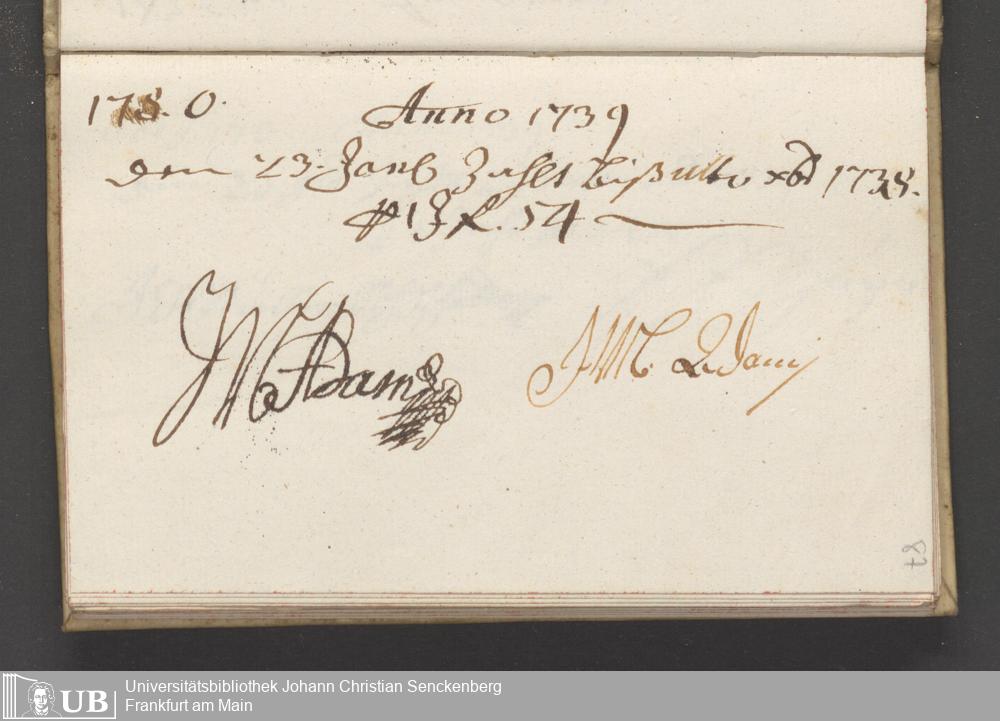 178. 0. Anno 1739
den 23. Janr Zahlt biß ulto xbr 1738.
54
JM Adami
JM. Adamj
87
UB
Universitätsbibliothek Johann Christian Senckenberg
Frankfurt am Main